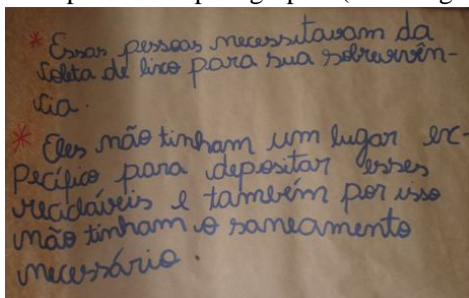 * Essas pessoas necessitavam da
Coleta de lixo para sua sobrevivên-
cia.
* Eles não tinham um lugar ex-
pecífico para depositar esses
recicláveis e também por isso
não tinham o saneamento
necessário.